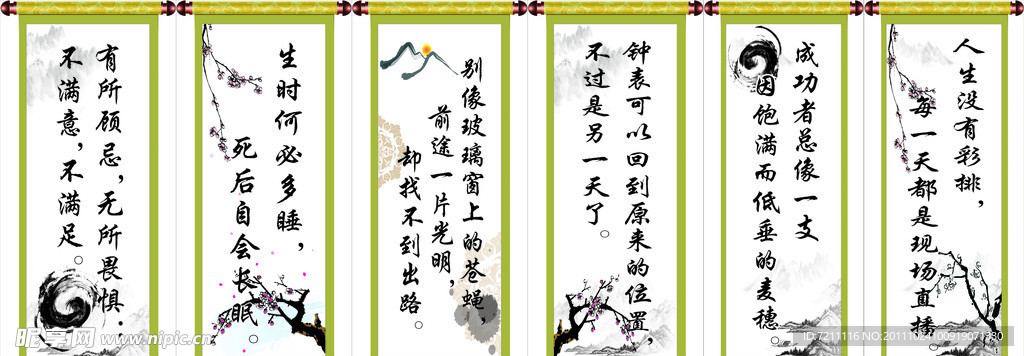 有所顾忌，无所畏惧．
不满意，不满足。
生时何必多睡，
死后自会长眠
别像玻璃窗上的苍蝇，
前途一片光明，
却找不到出路。
钟表可以回到原来的位置，
不过是另一天了。
成功者总像一支
因饱满而低垂的麦穗。
人生没有彩排，
每一天都是现场直播。
昵享网 www.nipic.cn
ID:7211116 NO:20111024100919071330